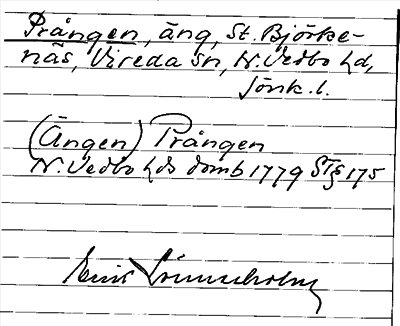 Prången, äng, St. Björke-
näs, Vireda sn, N. Vedbo hd,
Jönk. l.
(Ängen) Prången
N. Vedbo hds domb 1779 STg 175
Erik